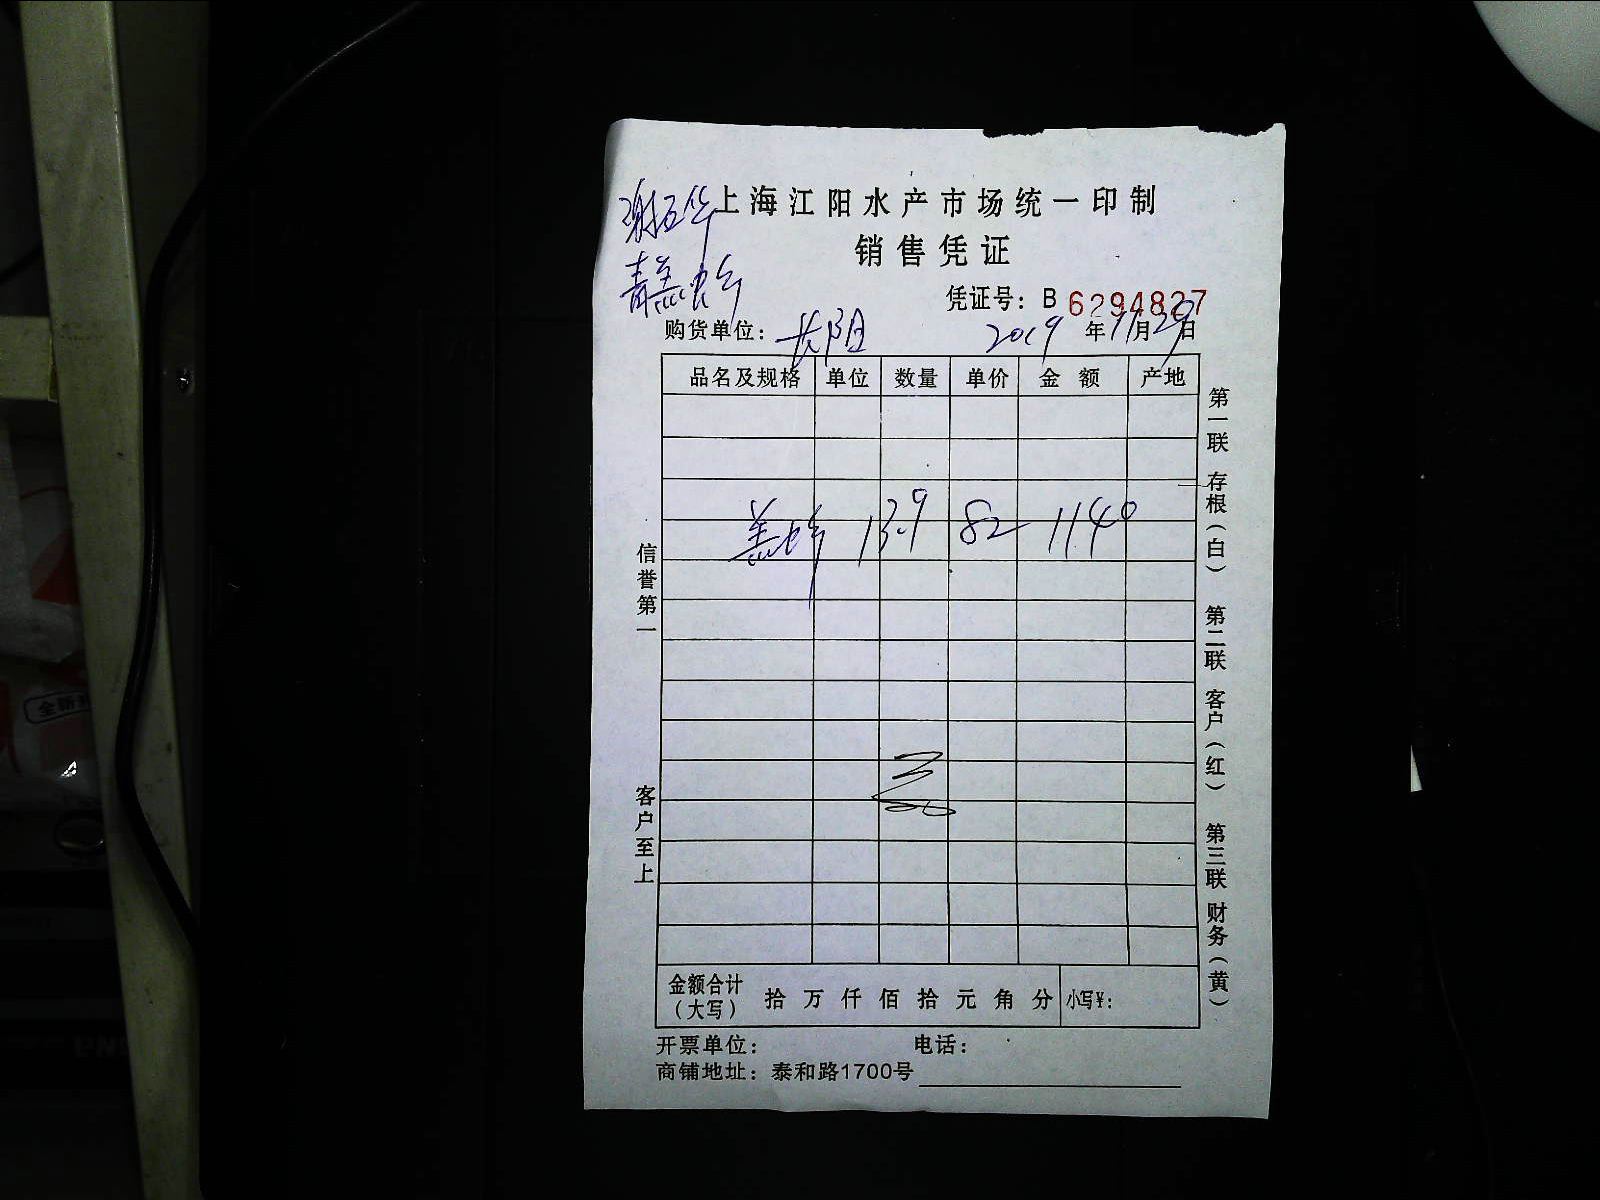 上海江阳水产市场统一印制
销售凭证
凭证号：B 6294827
购货单位：长阳 2019年11月29日
品名及规格 单位 数量 单价 金额 产地
13.9 82 1140
信誉第一
客户至上
第一联 存根（白） 第二联 客户（红） 第三联 财务（黄）
金额合计（大写） 拾 万 仟 佰 拾 元 角 分 小写￥：
开票单位： 电话：
商铺地址：泰和路1700号
全新